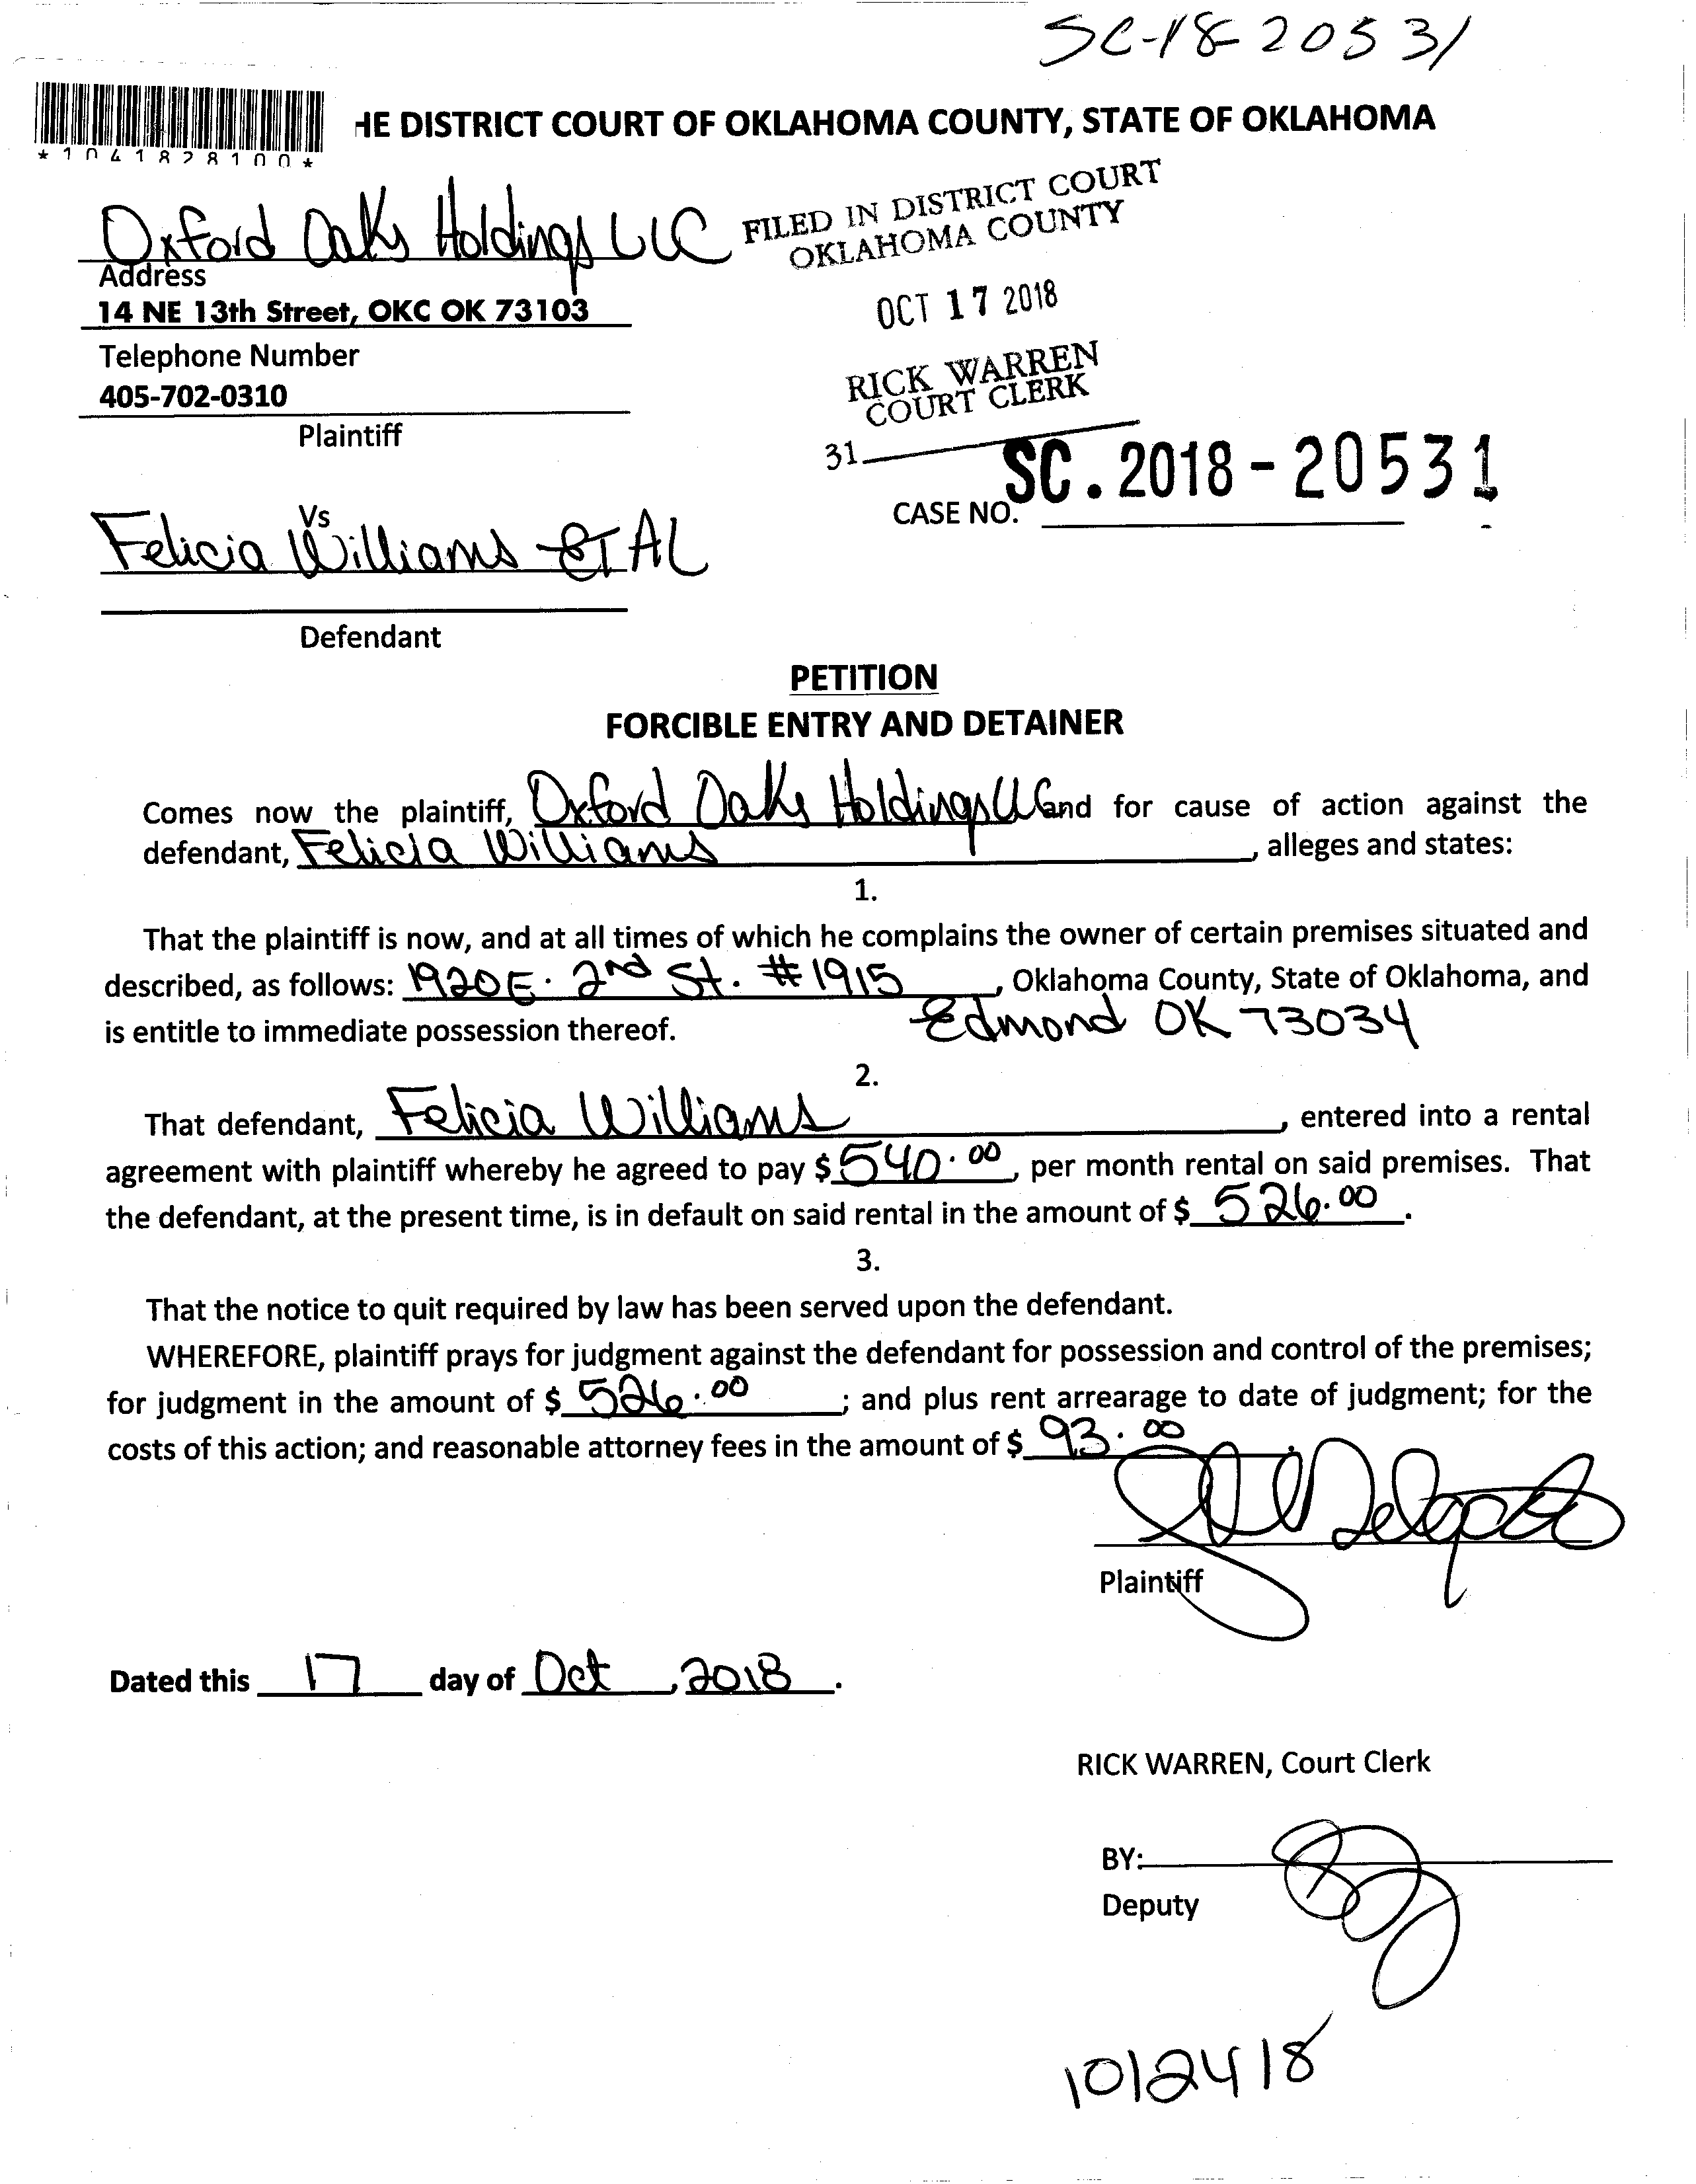 SC-18-20531
HE DISTRICT COURT OF OKLAHOMA COUNTY, STATE OF OKLAHOMA
*1041828100*
Oxford Oaks Holdings LLC
Address
14 NE 13th Street, OKC OK 73103
Telephone Number
405-702-0310
Plaintiff
FILED IN DISTRICT COURT
OKLAHOMA COUNTY
OCT 17 2018
RICK WARREN
COURT CLERK
31
SC.2018-20531
CASE NO.
Vs
Felicia Williams ET AL
Defendant
PETITION
FORCIBLE ENTRY AND DETAINER
Comes now the plaintiff, Oxford Oaks Holdings LLC and for cause of action against the
defendant, Felicia Williams, alleges and states:
1.
That the plaintiff is now, and at all times of which he complains the owner of certain premises situated and
described, as follows: 1920 E. 2nd St. #1915, Oklahoma County, State of Oklahoma, and
is entitle to immediate possession thereof. Edmond OK 73034
2.
That defendant, Felicia Williams, entered into a rental
agreement with plaintiff whereby he agreed to pay $540.00, per month rental on said premises. That
the defendant, at the present time, is in default on said rental in the amount of $ 526.00.
3.
That the notice to quit required by law has been served upon the defendant.
WHEREFORE, plaintiff prays for judgment against the defendant for possession and control of the premises;
for judgment in the amount of $ 526.00; and plus rent arrearage to date of judgment; for the
costs of this action; and reasonable attorney fees in the amount of $ 93.00
Plaintiff
Dated this 17 day of Oct, 2018.
RICK WARREN, Court Clerk
BY:
Deputy